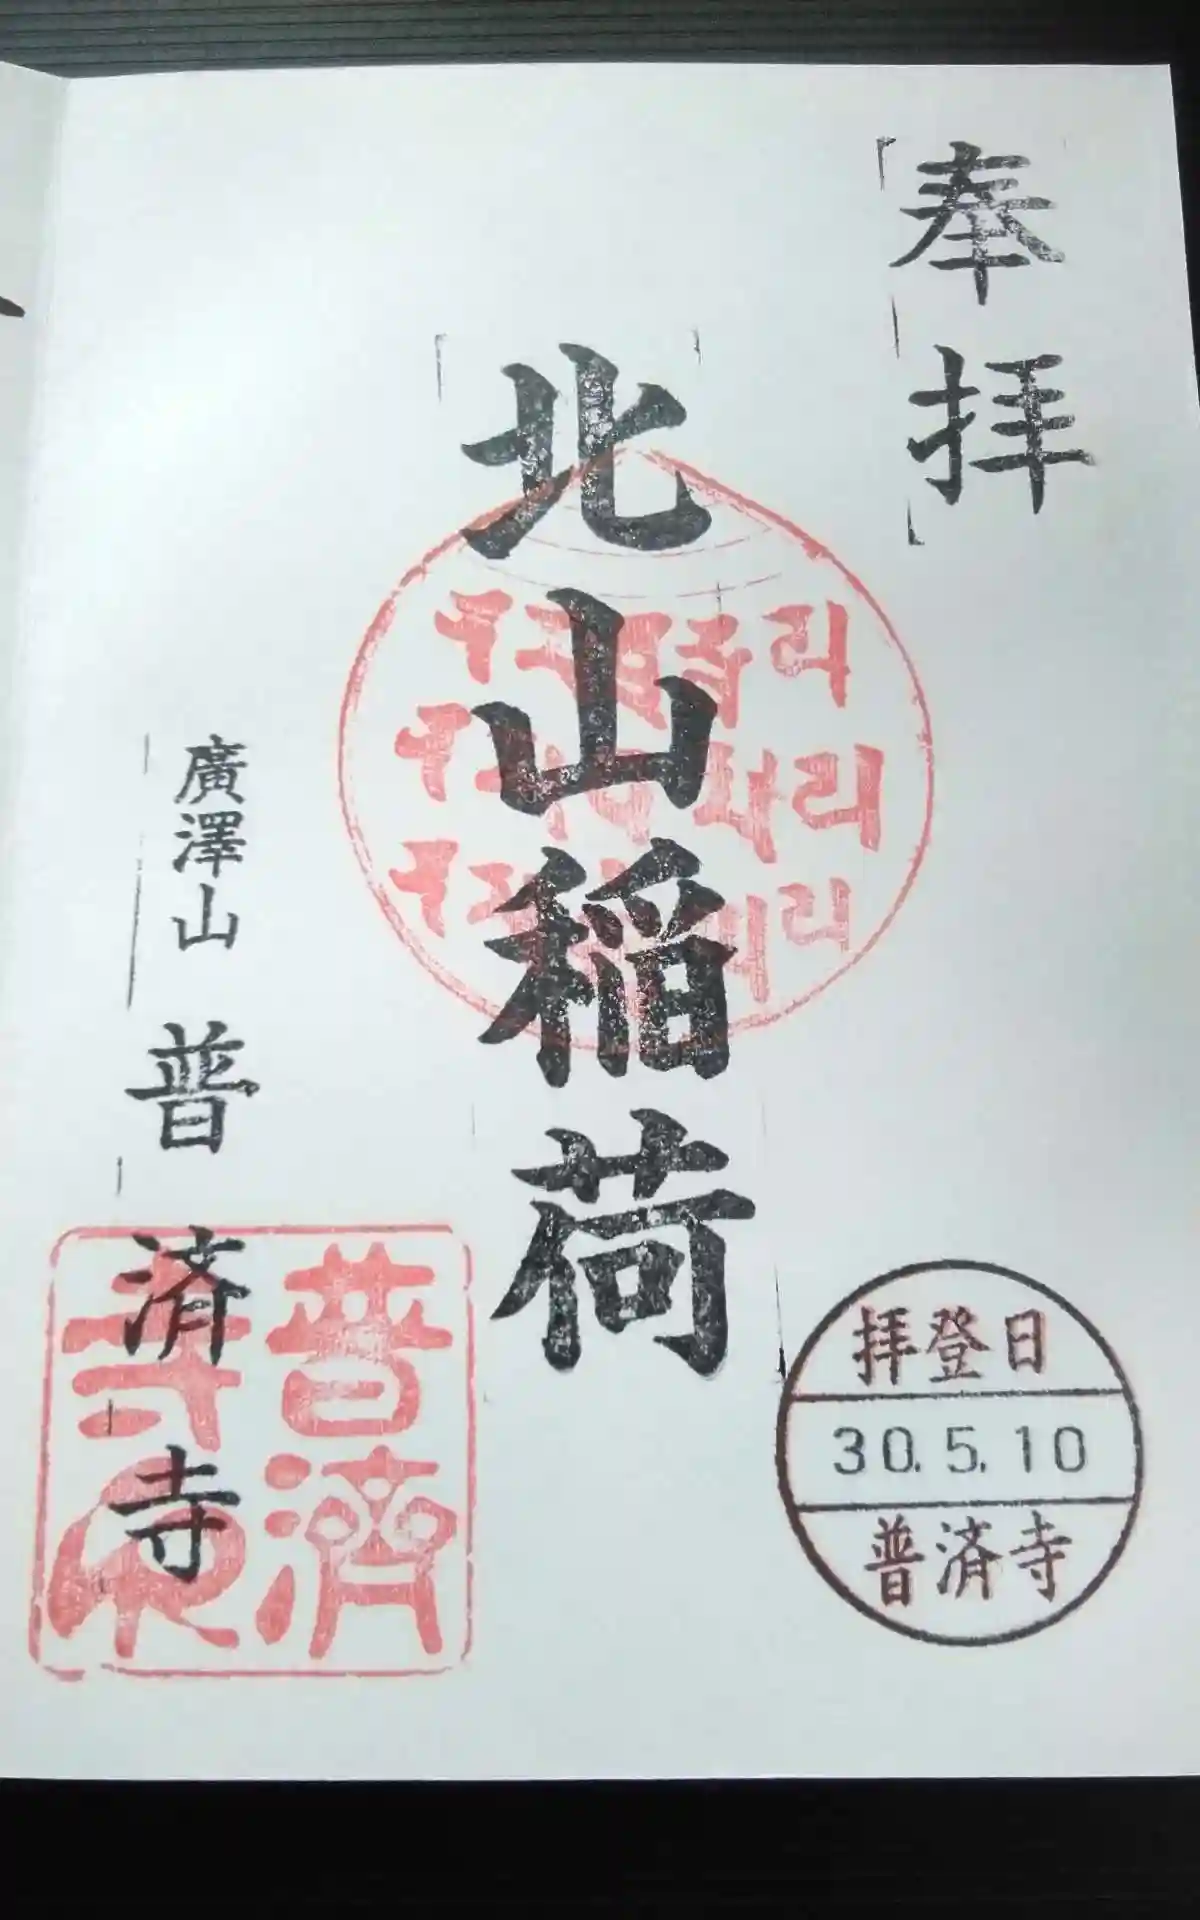 奉拝
北山稲荷
廣澤山 普済寺
普濟
寺印
拝登日
30.5.10
普済寺